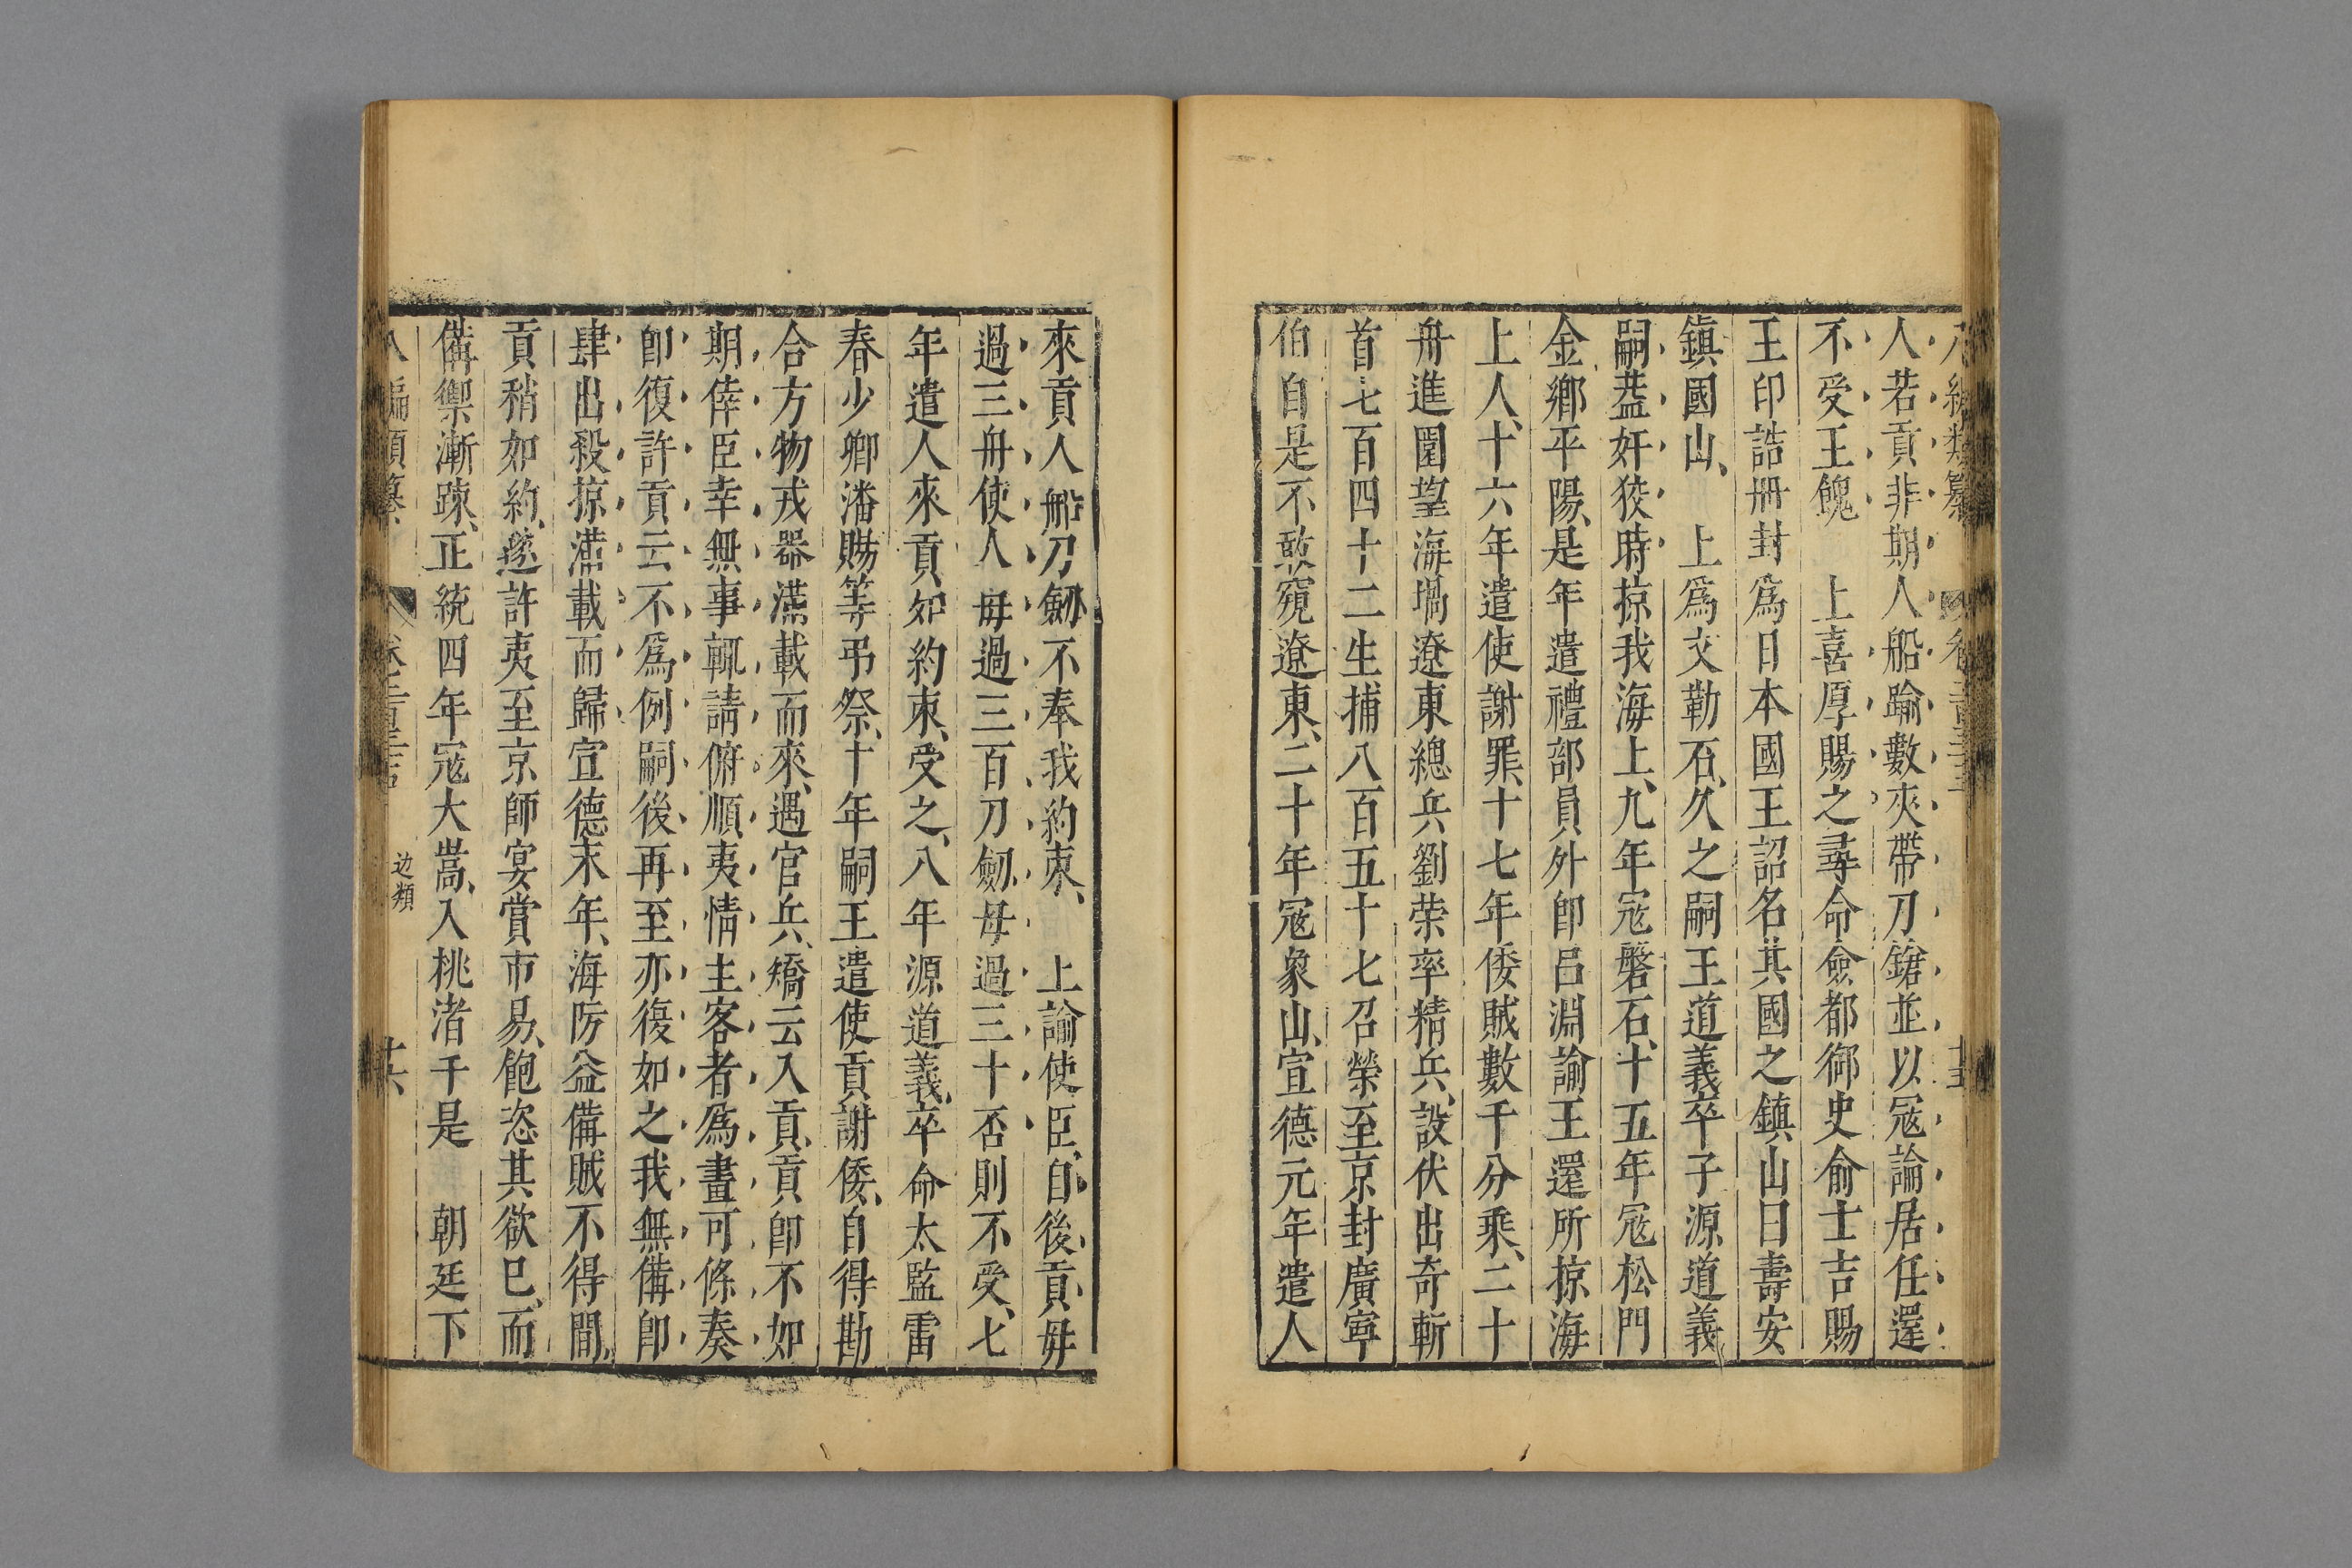 八編類纂 卷二百三十三 十五
人若貢非期人船踰數夾帶刀鎗並以寇論居任還
不受王餽 上喜厚賜之尋命僉都御史俞士吉賜
王印誥冊封爲日本國王詔名其國之鎮山曰壽安
鎮國山、 上爲文勒石、久之嗣王道義卒子源道義
嗣、葢奸狡時掠我海上、九年寇磐石、十五年寇松門
金鄉平陽、是年遣禮部員外郎呂淵諭王還所掠海
上人、十六年遣使謝罪、十七年倭賊數千分乘、二十
舟進圍望海堝遼東總兵劉荣率精兵、設伏出奇斬
首七百四十二生捕八百五十七召榮至京封廣寧
伯自是不敢窺遼東、二十年寇象山、宣德元年遣人
來貢人船刀劒不奉我約束、 上諭使臣、自後貢毋
過三舟使人毋過三百刀劒毋過三十否則不受、七
年遣人來貢、如約束、受之、八年源道義、卒命太監雷
春少卿潘賜等弔祭、十年嗣王遣使貢謝倭、自得勘
合方物戎器滿載而來、遇官兵、矯云入貢、貢卽不如
期倖臣幸無事輒請俯順夷情主客者爲畫可條奏
卽復許貢云不爲例嗣後再至亦復如之我無備卽
肆出殺掠滿載而歸宣德末年、海防益備賊不得間
貢稍如約、遂許夷至京師宴賞市易、飽恣其欲巳、而
備禦漸踈、正統四年寇大嵩、入桃渚千是 朝廷下
八編類纂 邊類 十六